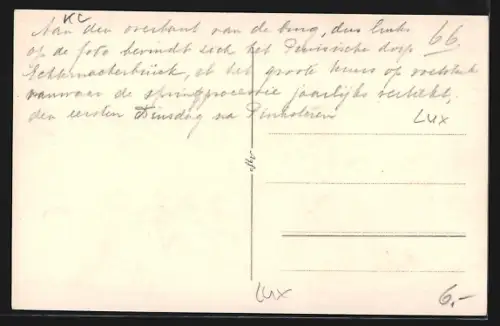 KC
Aan den overkant van de brug, dus links
op de foto bevindt zich het Pruisische dorp
66
Echternacherbrück, et het groote kruis op rotsblok
vanwaar de springprocessie jaarlijks vertrekt,
den eersten Dinsdag na Pinksteren
LUX
LUX
6.-